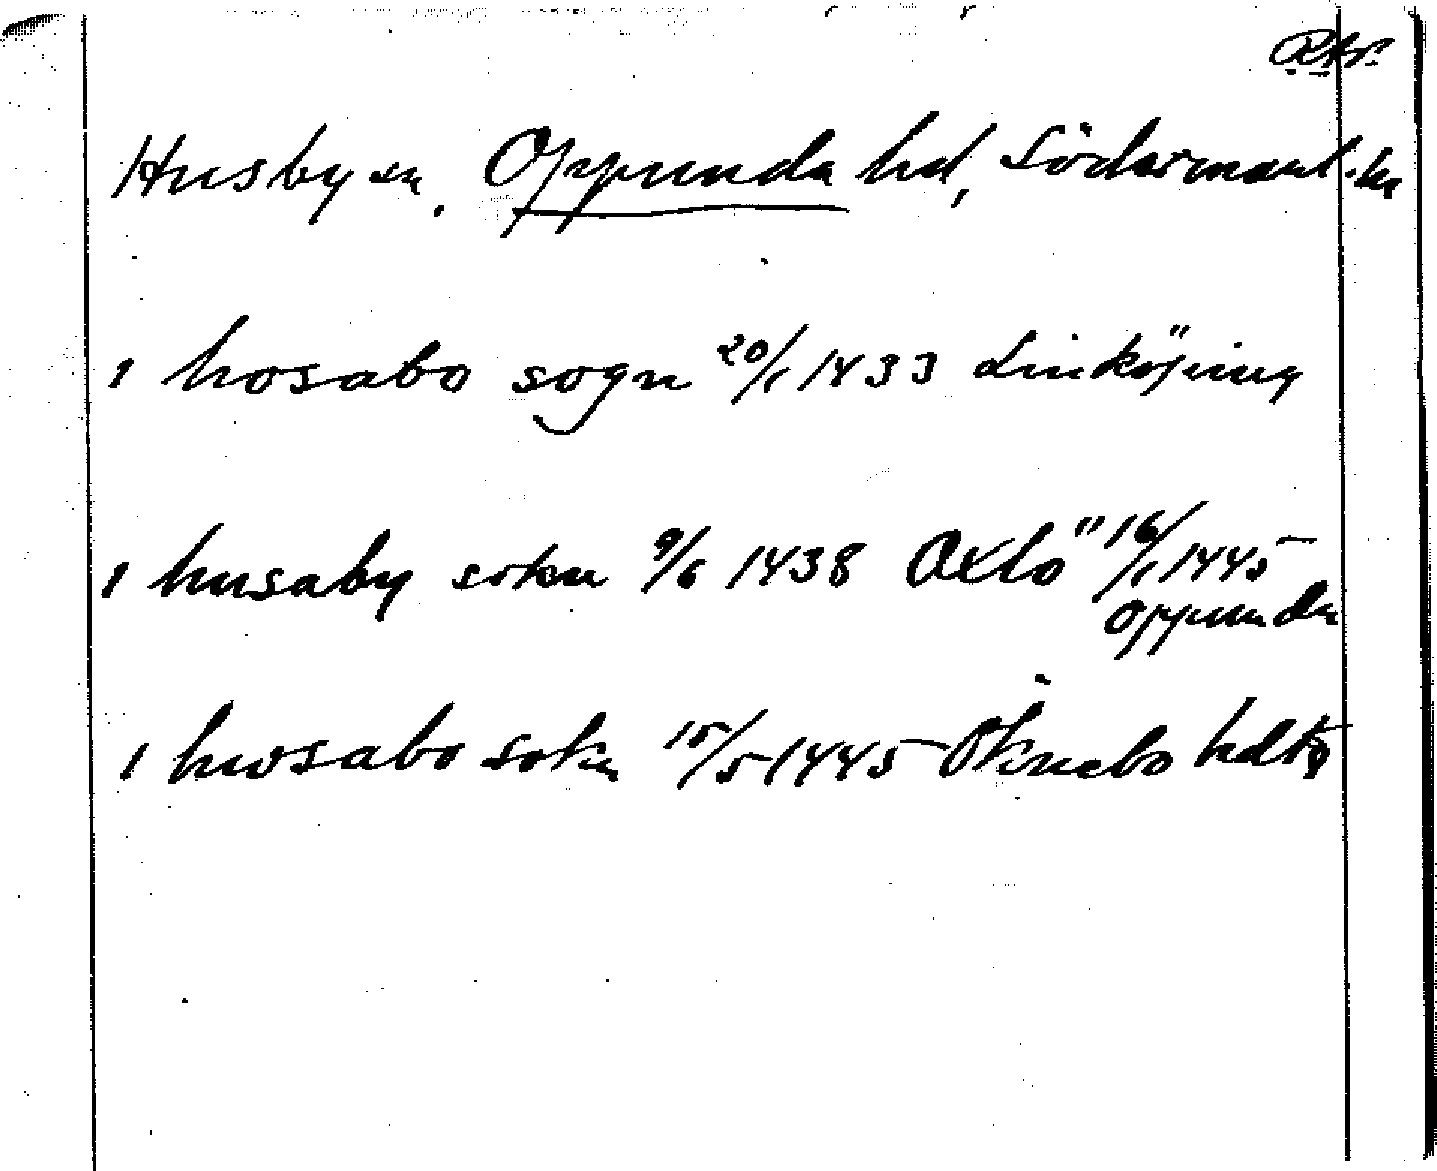 Husby sn. Oppunda hd, Södermanl. län
i hosabo sogn 20/1 1433 Linköping
i husaby sokn 9/6 1438 Oxlö" 16/1 1445
Oppunda
i hwsabo sokn 15/5 1445 Öknebo hdtg